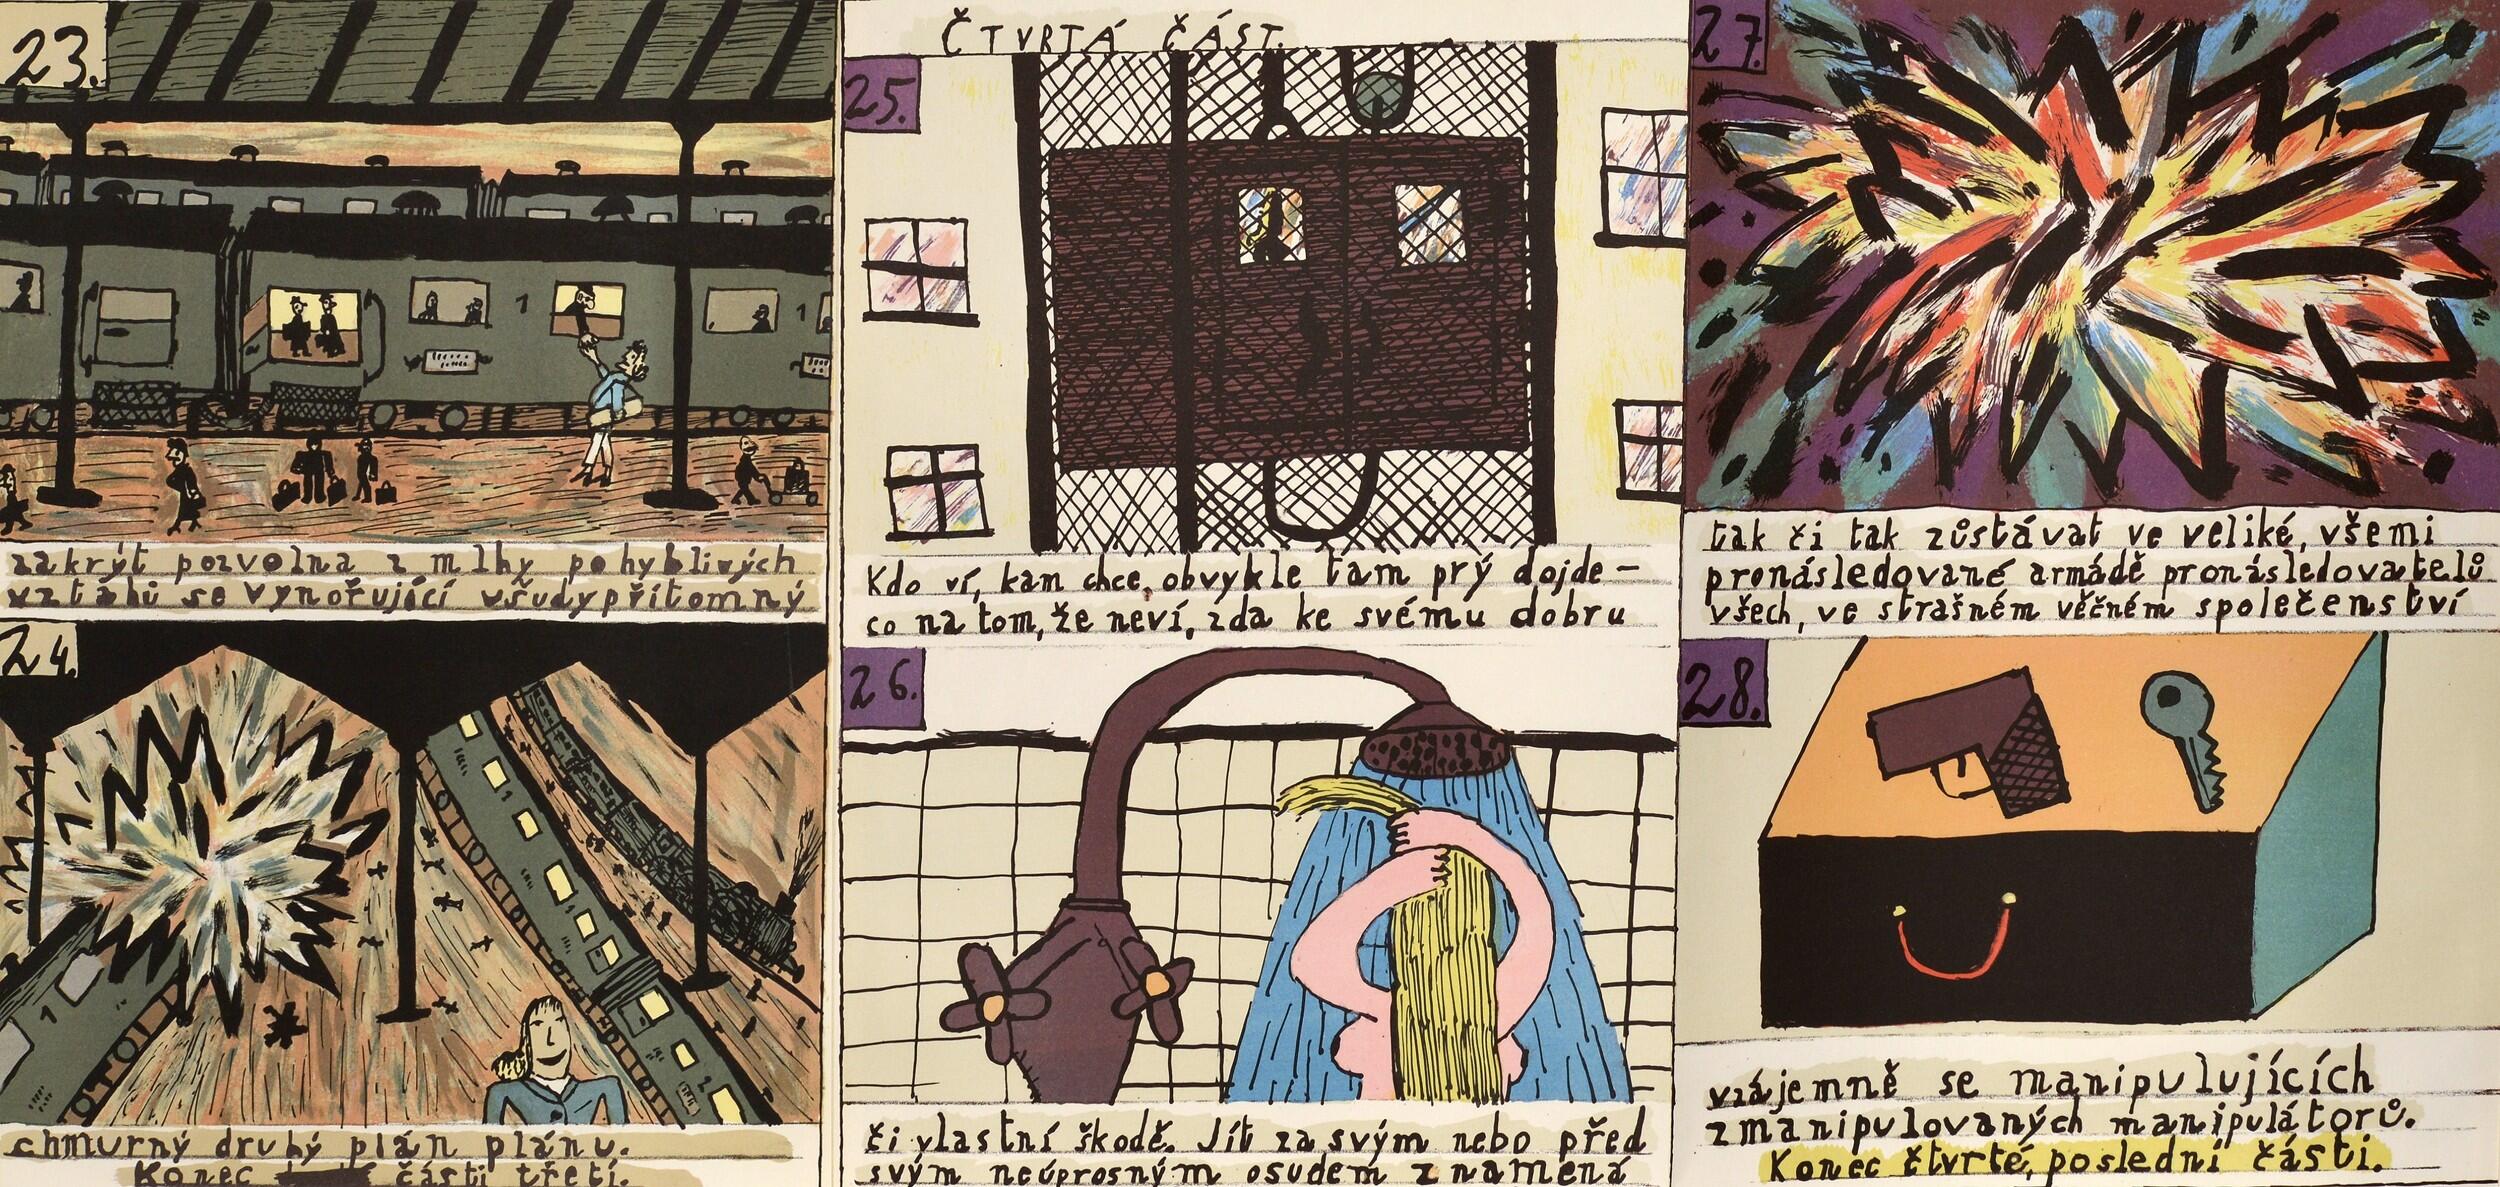 23.
zakrýt pozvolna z mlhy pohyblivých
vztahů se vynořující všudypřítomný
24.
chmurný druhý plán plánu.
Konec části třetí.
ČTVRTÁ ČÁST.
25.
Kdo ví, kam chce, obvykle tam prý dojde –
co na tom, že neví, zda ke svému dobru
26.
či vlastní škodě. Jít za svým nebo před
svým neúprosným osudem znamená
27.
tak či tak zůstávat ve veliké, všemi
pronásledované armádě pronásledovatelů
všech, ve strašném věčném společenství
28.
vzájemně se manipulujících
zmanipulovaných manipulátorů.
Konec čtvrté, poslední části.